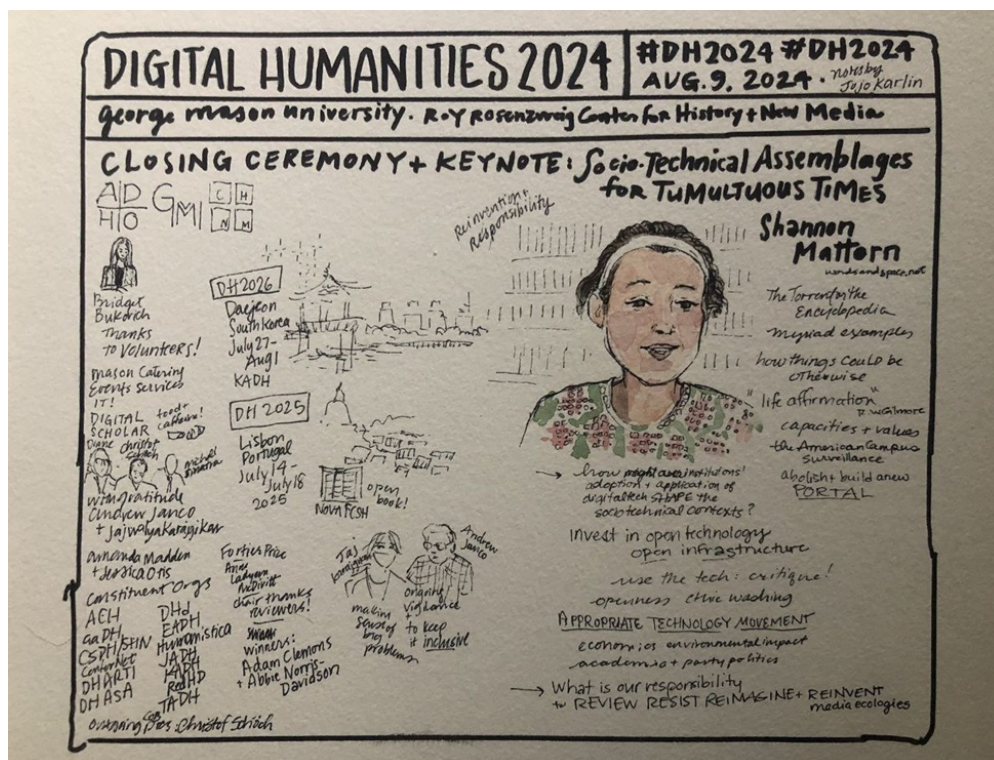 DIGITAL HUMANITIES 2024
#DH2024 #DH2024
AUG. 9. 2024.
notes by
JoJo Karlin
george mason university. Roy Rosenzweig Center for History + New Media
CLOSING CEREMONY + KEYNOTE: Socio-Technical Assemblages
for TUMULTUOUS TIMES
AD
HO
GMU
C H
N M
Reinvention +
Responsibility
Shannon
Mattern
wordsandspace.net
Bridget
Thanks
to Volunteers!
Mason Catering
Events Services
IT!
DIGITAL
SCHOLAR
food +
caffeine!
Diane
Christof
Schöch
with gratitude
Andrew Janco
Amanda Madden
+ Jessica Otis
Constituent Orgs
AEH
aaDH
CSDH/SHN
CenterNet
DHARTI
DHASA
DHd
EADH
Humanistica
JADH
KADH
RedHD
TADH
Christof Schöch
DH2026
Daejeon
South Korea
July 27-
Aug 1
KADH
DH 2025
Lisbon
Portugal
July 14-
July 18
2025
NOVA FCSH
open
book!
Fortier Prize
Anne
Ladyem
McDivitt
chair thanks
reviewers!
winners:
Adam Clemons
+ Abbie Norris-
Davidson
Taj
making
sense of
big
problems
Andrew
Janco
vigilance
+ to keep
it inclusive
The Torrent for the
Encyclopedia
myriad examples
how things could be
otherwise
"life affirmation"
R. W. Gilmore
capacities + values
the American Campus
Surveillance
abolish + build anew
PORTAL
→ how institutions'
adoption + application of
digital tech SHAPE the
sociotechnical contexts?
Invest in open technology
open infrastructure
use the tech: critique!
openness ethic washing
APPROPRIATE TECHNOLOGY MOVEMENT
economics environmental impact
academia + party politics
→ What is our responsibility
to REVIEW RESIST REIMAGINE + REINVENT
media ecologies